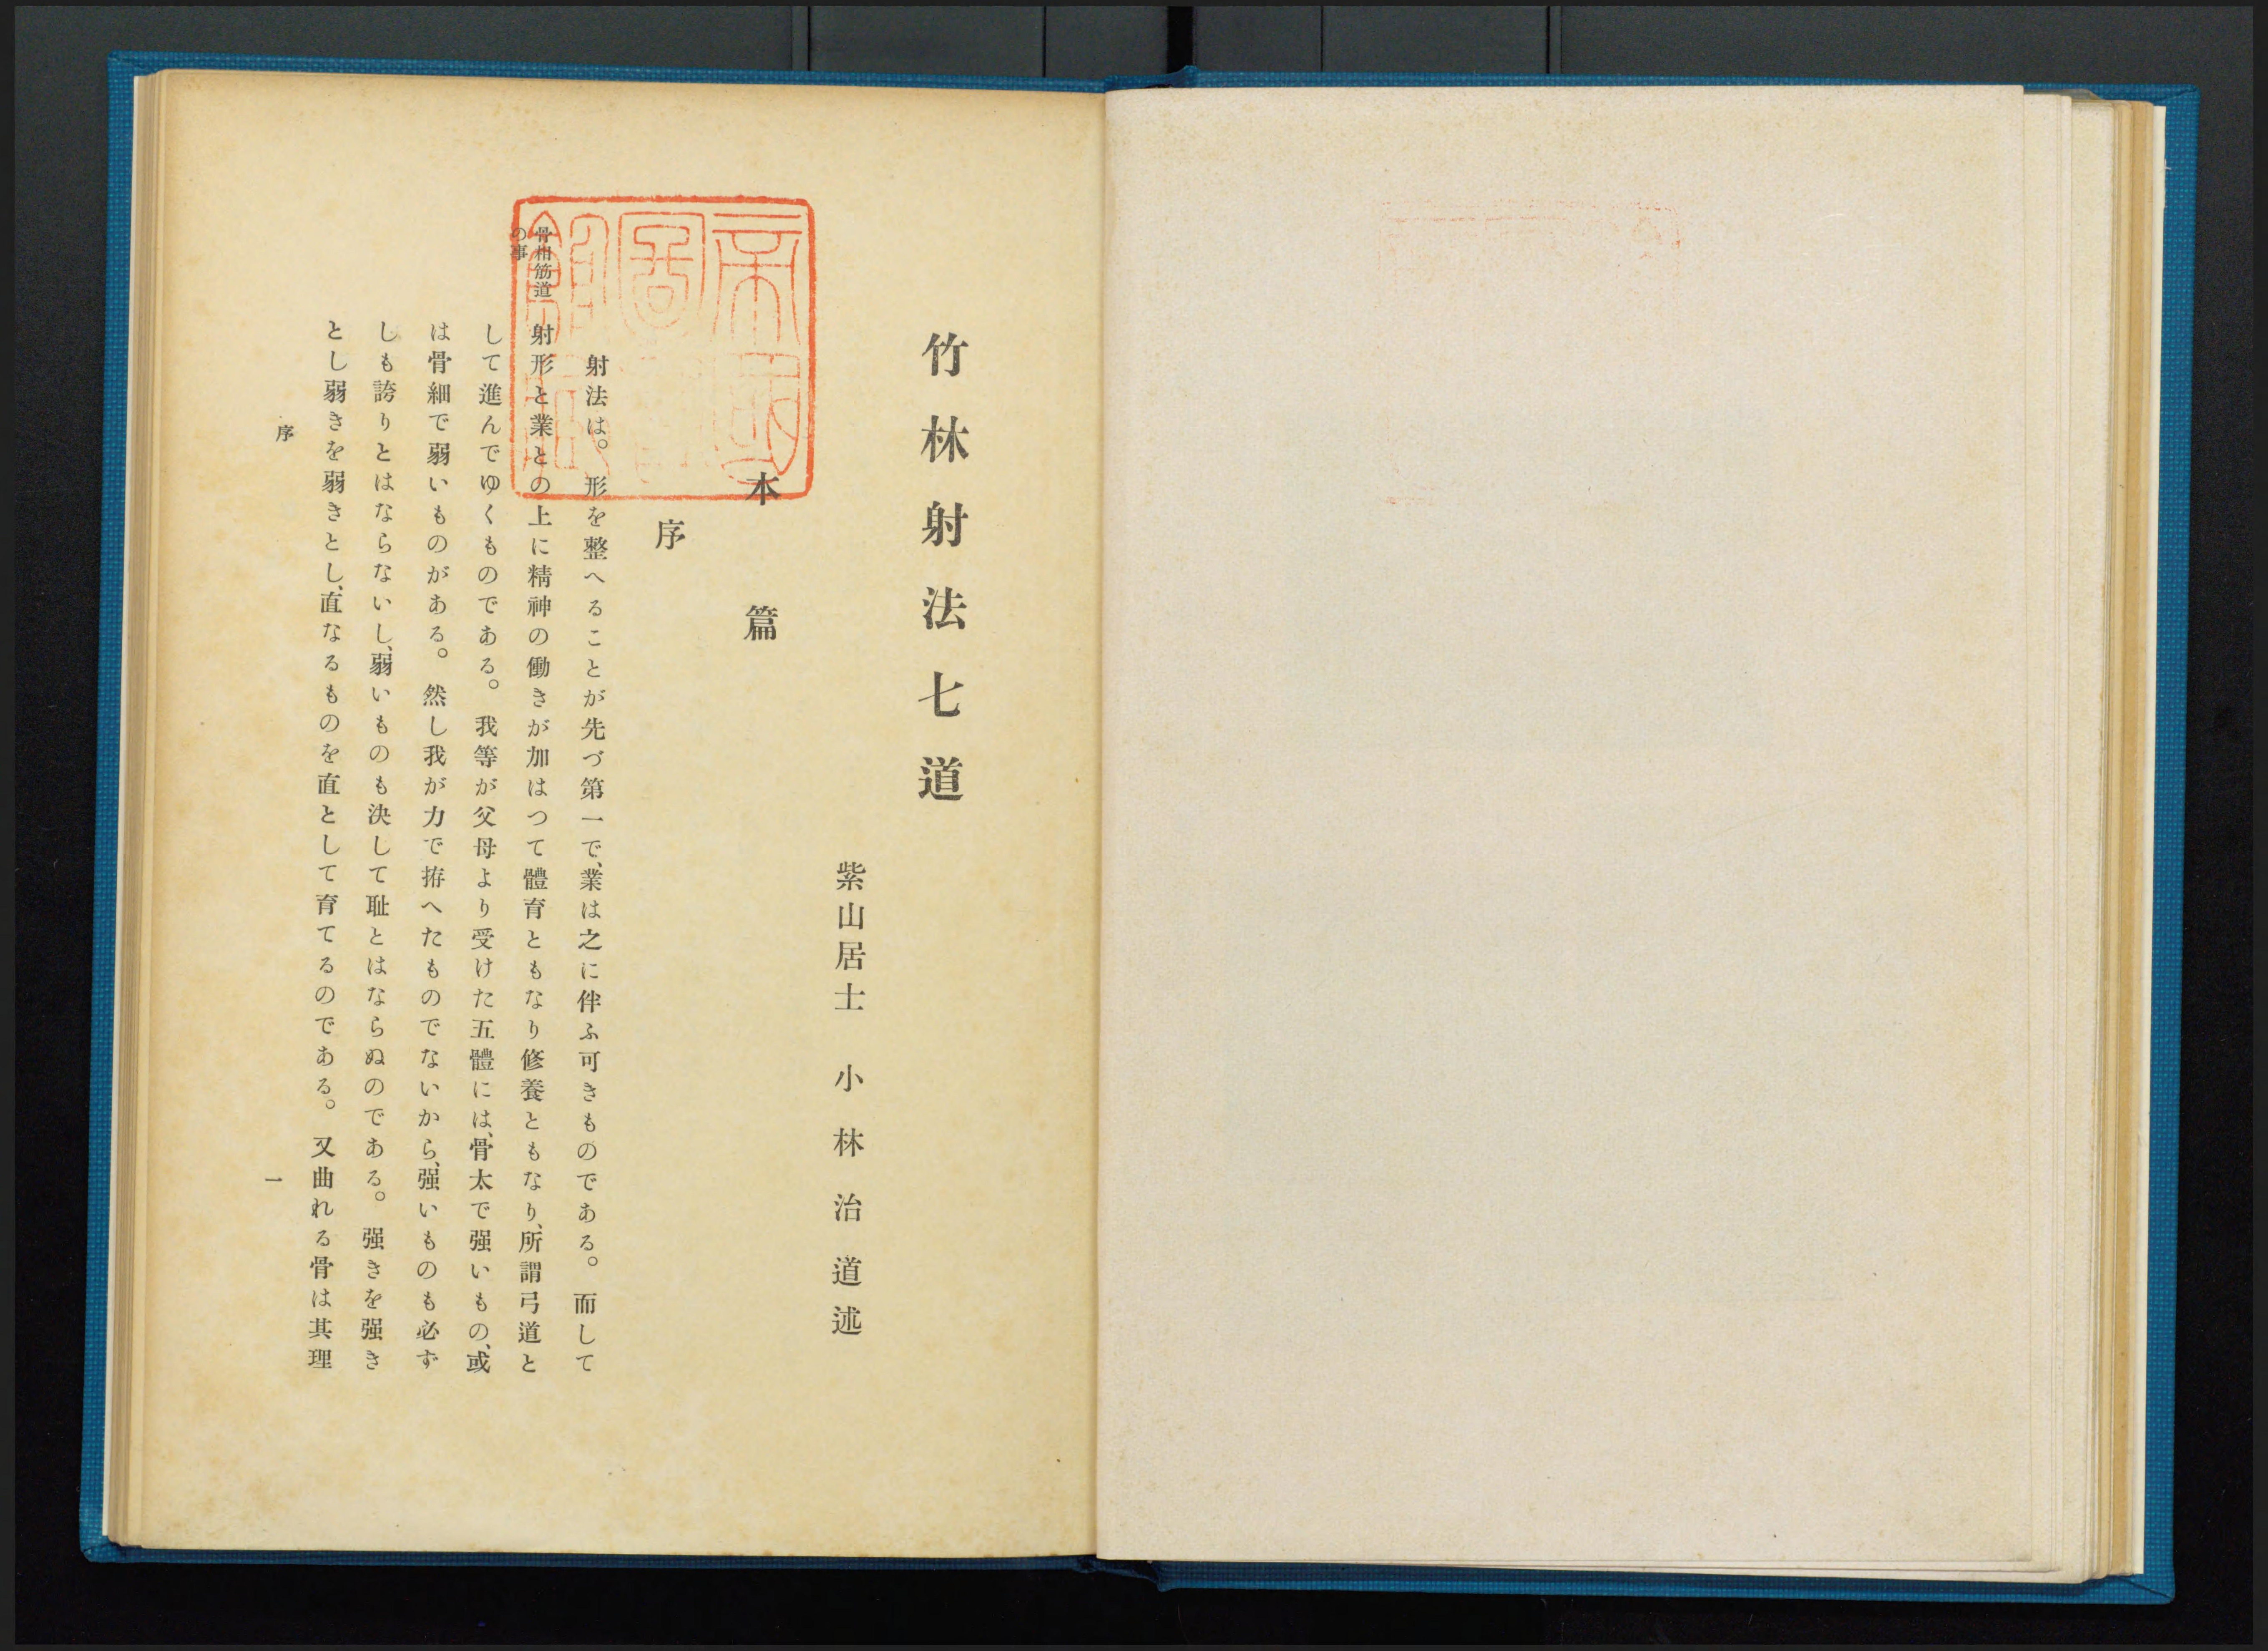 竹林射法七道
紫山居士　小林治道述
本篇
序
骨相筋道
の事
射法は。形を整へることが先づ第一で、業は之に伴ふ可きものである。而して
射形と業との上に精神の働きが加はつて體育ともなり修養ともなり、所謂弓道と
して進んでゆくものである。我等が父母より受けた五體には、骨太で强いもの、或
は骨細で弱いものがある。然し我が力で拵へたものでないから、强いものも必ず
しも誇りとはならないし、弱いものも決して耻とはならぬのである。强きを强き
とし弱きを弱きとし、直なるものを直として育てるのである。又曲れる骨は其理
序
一